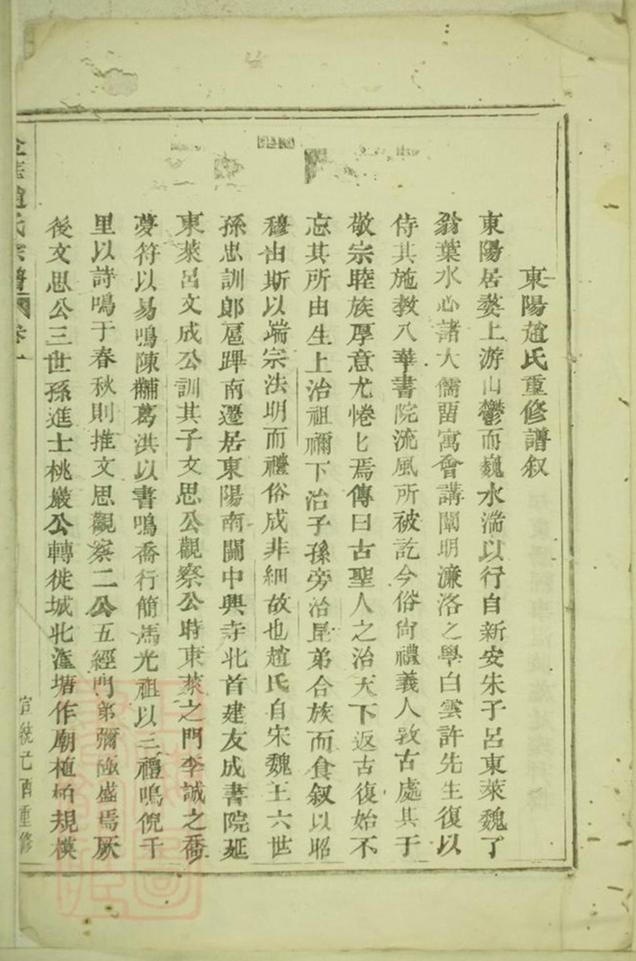 東陽趙氏重修譜叙
東陽居婺上游山鬱而巍水湍以行自新安朱子呂東萊魏了
翁葉水心諸大儒畱寓會講闡明濂洛之學白雲許先生復以
侍其施教八華書院流風所被訖今俗尙禮義人敦古處其于
敬宗睦族厚意尤惓匕焉傳曰古聖人之治天下返古復始不
忘其所由生上治祖禰下治子孫旁治昆弟合族而食叙以昭
穆由斯以端宗法明而禮俗成非細故也趙氏自宋魏王六世
孫忠訓郎扈蹕南遷居東陽南關中興寺北首建友成書院延
東萊呂文成公訓其子文思公觀察公時東萊之門李誠之喬
夢符以易鳴陳黼葛洪以書鳴喬行簡馮光祖以三禮鳴倪千
里以詩鳴于春秋則推文思觀察二公五經門弟彌極盛焉厥
後文思公三世孫進士桃巖公轉徙城北滙塘作廟植柏規模
趙氏宗譜
宣統己酉重修